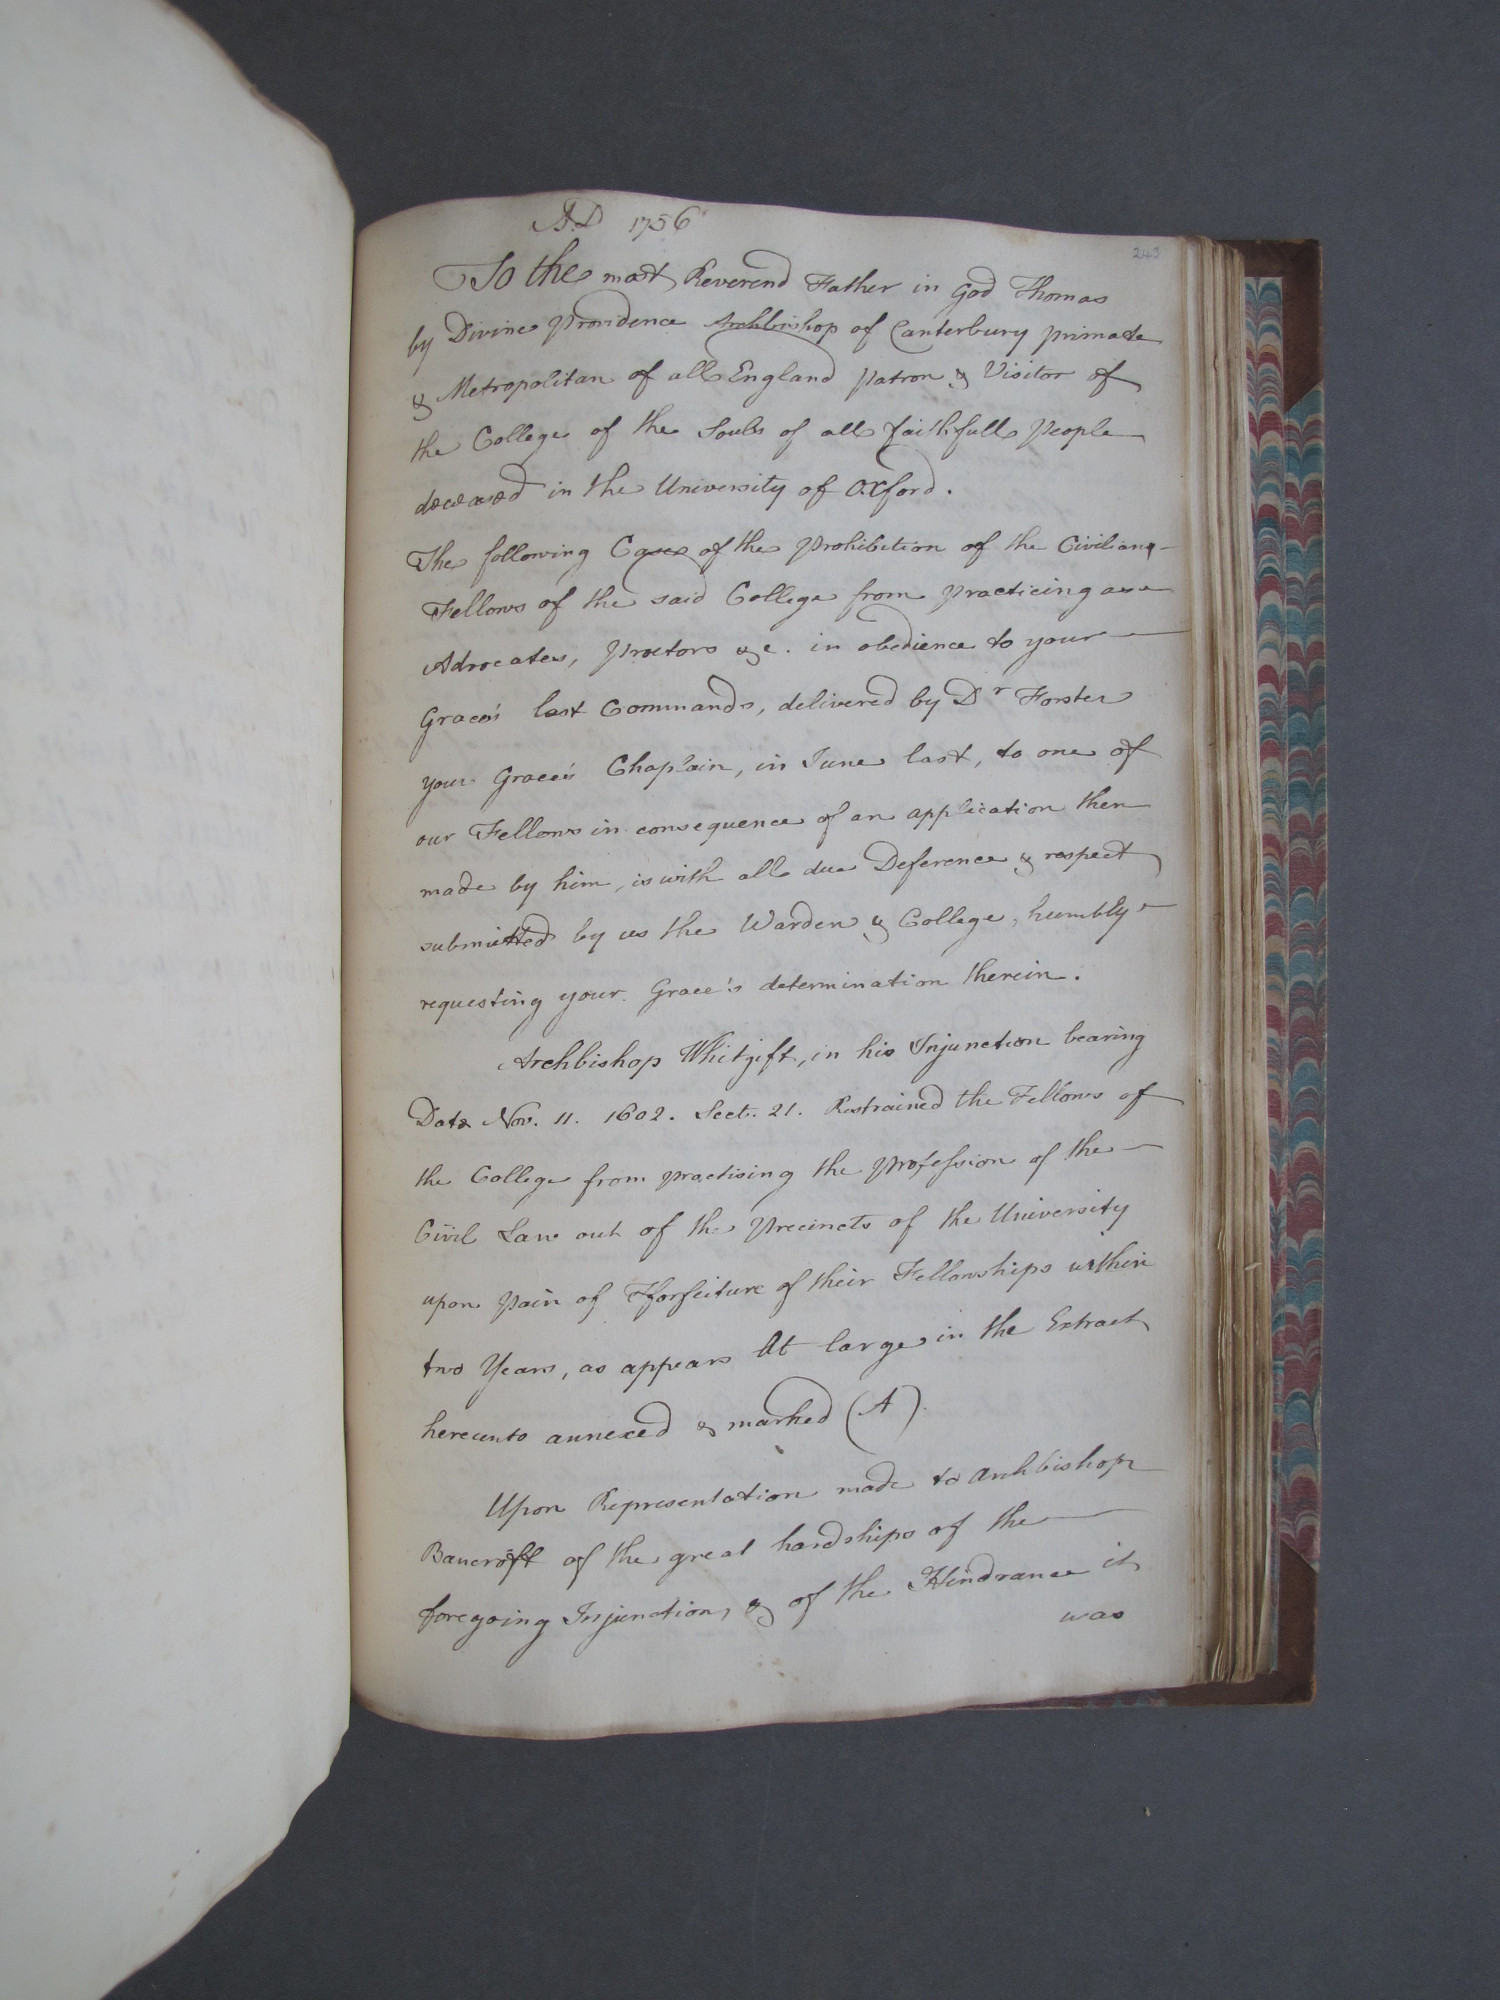 A.D 1756
243
To the most Reverend Father in God Thomas
by Divine Providence Archbishop of Canterbury primate
& Metropolitan of all England patron & Visitor of
the College of the Souls of all faithfull People
deceased in the University of Oxford.
The following Case of the Prohibition of the Civilians
Fellows of the said College from practicing as
Advocates, Proctors &c. in obedience to your
Grace's last Commands, delivered by Dr Forster
your Grace's Chaplain, in June last, to one of
our Fellows in consequence of an application then
made by him, is with all due Deference & respect
submitted by us the Warden & College, humbly
requesting your Grace's determination therein.
Archbishop Whitgift, in his Injunction bearing
Date Nov. 11. 1602. Sect. 21. Restrained the Fellows of
the College from practising the profession of the
Civil Law out of the Precincts of the University
upon pain of Fforfeiture of their Fellowships within
two Years, as appears At large in the Extract
hereunto annexed & marked (A).
Upon Representation made to Archbishop
Bancroft of the great hardships of the
foregoing Injunction, & of the Hindrance it
was